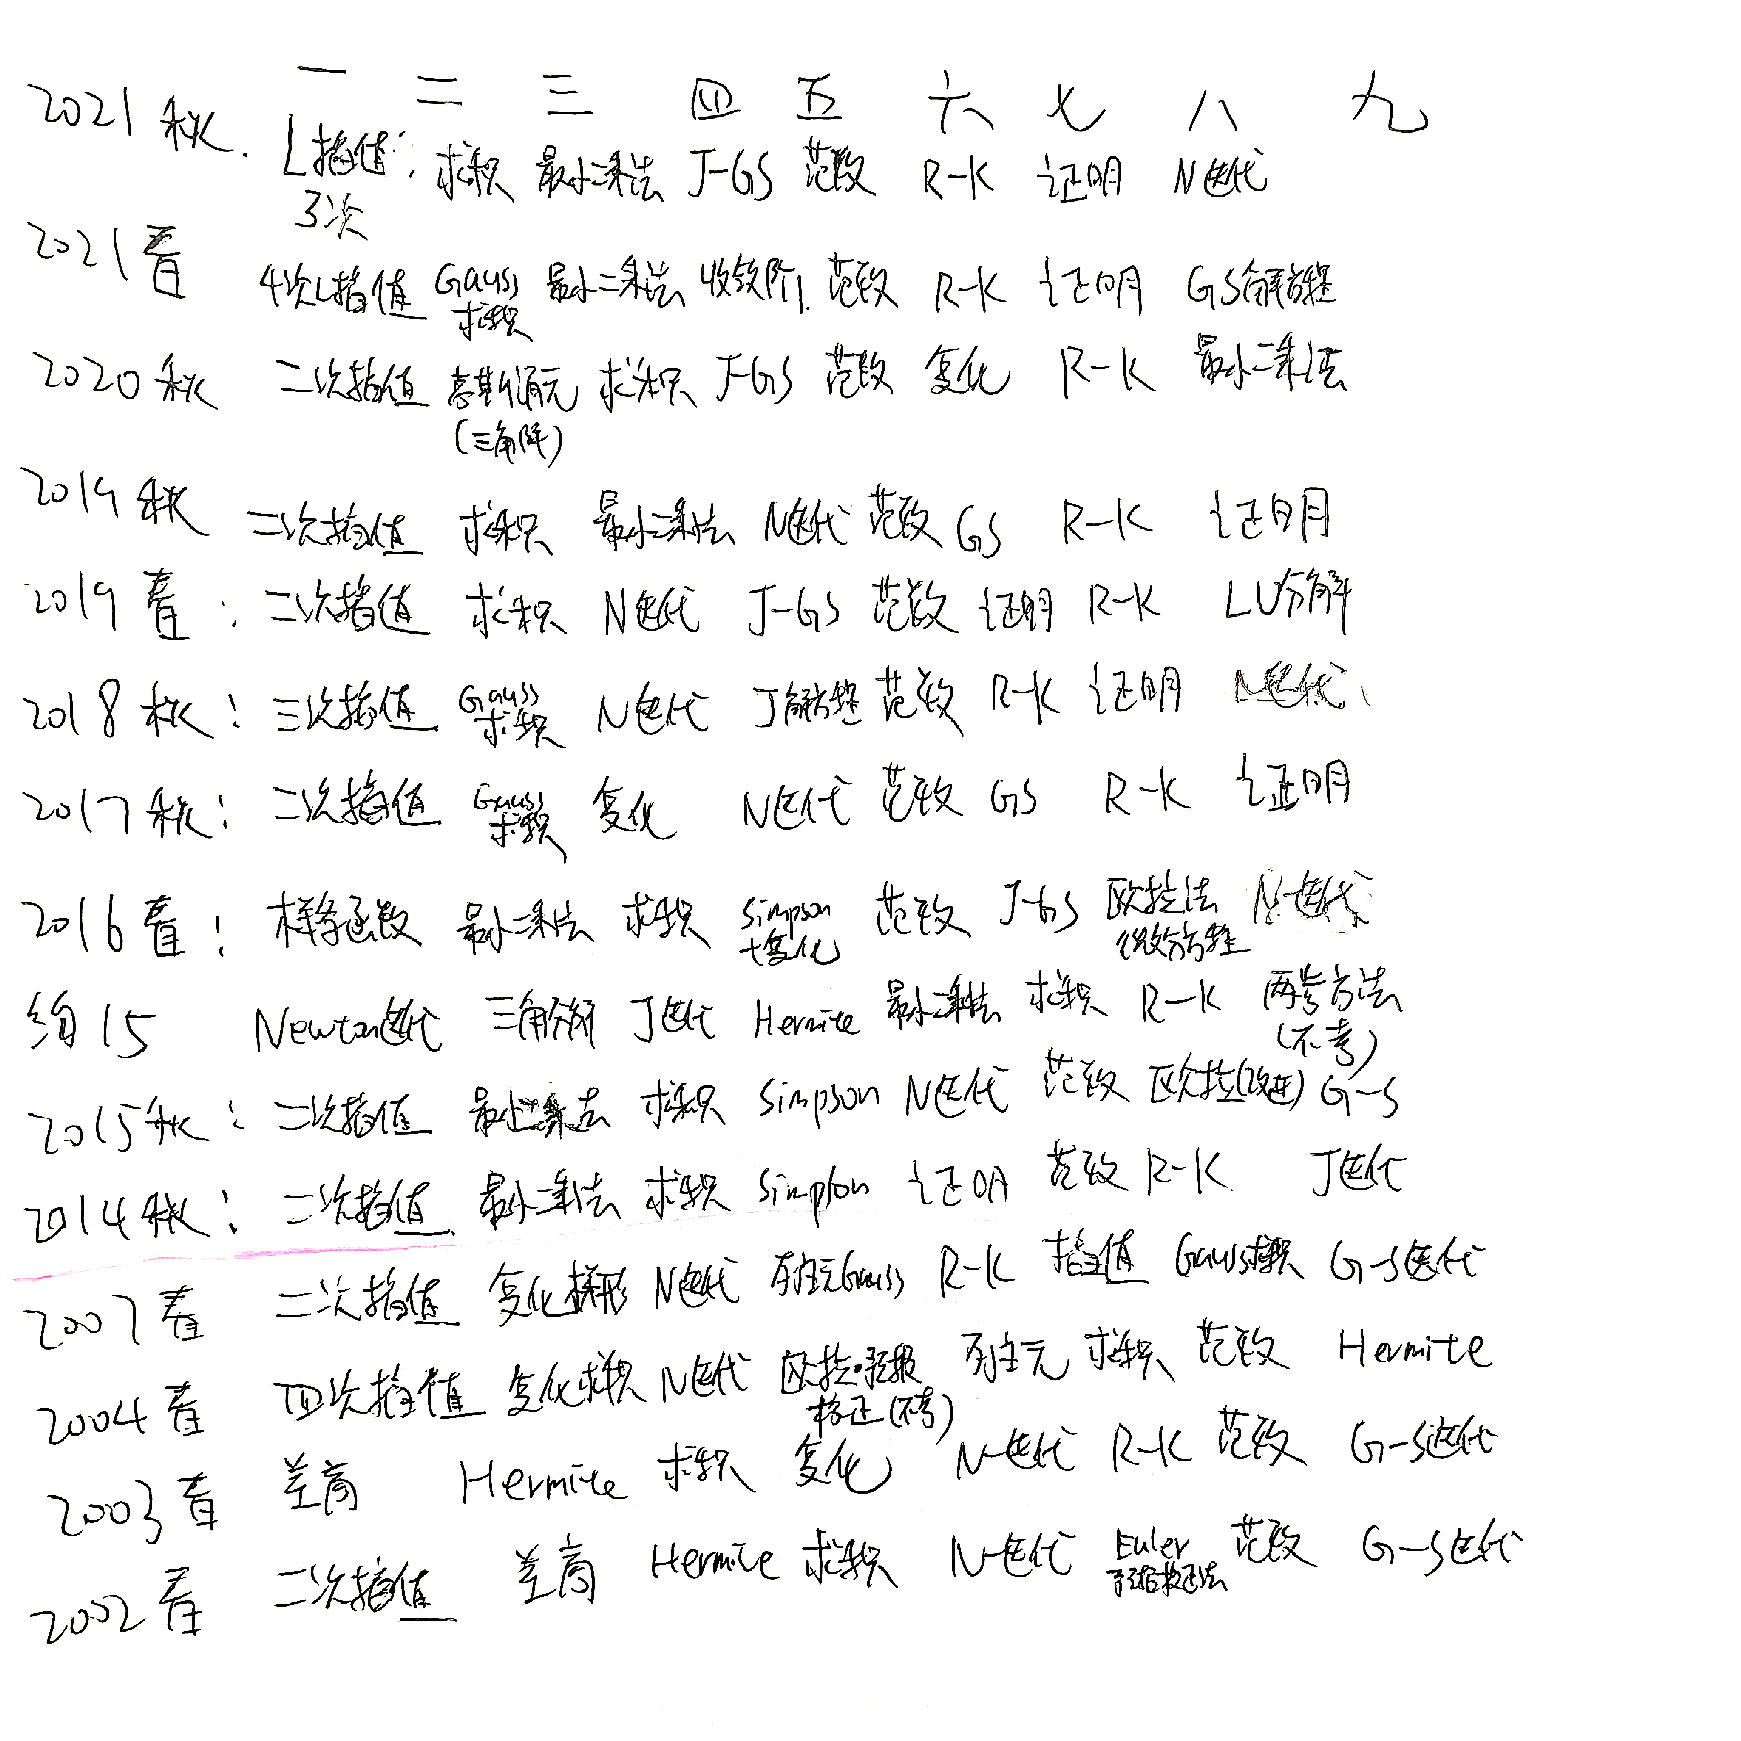 一 二 三 四 五 六 七 八 九
2021秋. L插值: 求积 最小二乘法 J-GS 范数 R-K 证明 N迭代
3次
2021春 4次L插值 Gauss求积 最小二乘法 收敛阶 范数 R-K 证明 GS解方程
2020秋 二次插值 高斯消元 求积 J-GS 范数 复化 R-K 最小二乘法
(三角阵)
2019秋 二次插值 求积 最小二乘法 N迭代 范数 GS R-K 证明
2019春: 二次插值 求积 N迭代 J-GS 范数 证明 R-K LU分解
2018秋: 三次插值 Gauss求积 N迭代 J解方程 范数 R-K 证明 N迭代
2017秋: 二次插值 Gauss求积 复化 N迭代 范数 GS R-K 证明
2016春: 样条函数 最小二乘法 求积 Simpson+复化 范数 J-GS 欧拉法 N迭代
微分方程
15 Newton迭代 三角分解 J迭代 Hermite 最小二乘法 求积 R-K 两步方法
(不考)
2015秋: 二次插值 最小二乘法 求积 Simpson N迭代 范数 欧拉(改进) G-S
2014秋: 二次插值 最小二乘法 求积 Simpson 证明 范数 R-K J迭代
2007春 二次插值 复化梯形 N迭代 列主元Gauss R-K 插值 Gauss求积 G-S迭代
2004春 四次插值 复化求积 N迭代 欧拉·预报 列主元 求积 范数 Hermite
校正(不考)
2003春 差商 Hermite 求积 复化 N-迭代 R-K 范数 G-S迭代
2002春 二次插值 差商 Hermite 求积 N-迭代 Euler 范数 G-S迭代
预估校正法